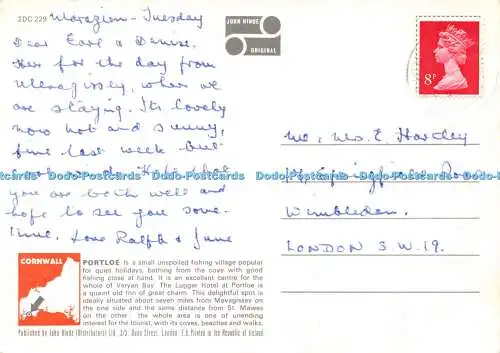 2DC 229
Marazion - Tuesday
Dear Earl & Denise.
Here for the day from
Mevagissey, where we
are staying. Its lovely
now hot and sunny,
fine last week but
you are both well and
hope to see you some
time. Love Ralph & June
JOHN HINDE
ORIGINAL
8P
Mr, Mrs. E. Hartley
Wimbledon.
LONDON S.W.19.
Dodo-Postcards Dodo-Postcards Dodo-Postcards Dodo-Postcards Dodo-Postcards
CORNWALL
PORTLOE is a small unspoiled fishing village popular
for quiet holidays, bathing from the cove with good
fishing close at hand. It is an excellent centre for the
whole of Veryan Bay. The Lugger Hotel at Portloe is
a quaint old inn of great charm. This delightful spot is
ideally situated about seven miles from Mevagissey on
the one side and the same distance from St. Mawes
on the other: the whole area is one of unending
interest for the tourist, with its coves, beaches and walks.
Published by John Hinde (Distributors) Ltd. Street, London. E.8. Printed in the Republic of Ireland